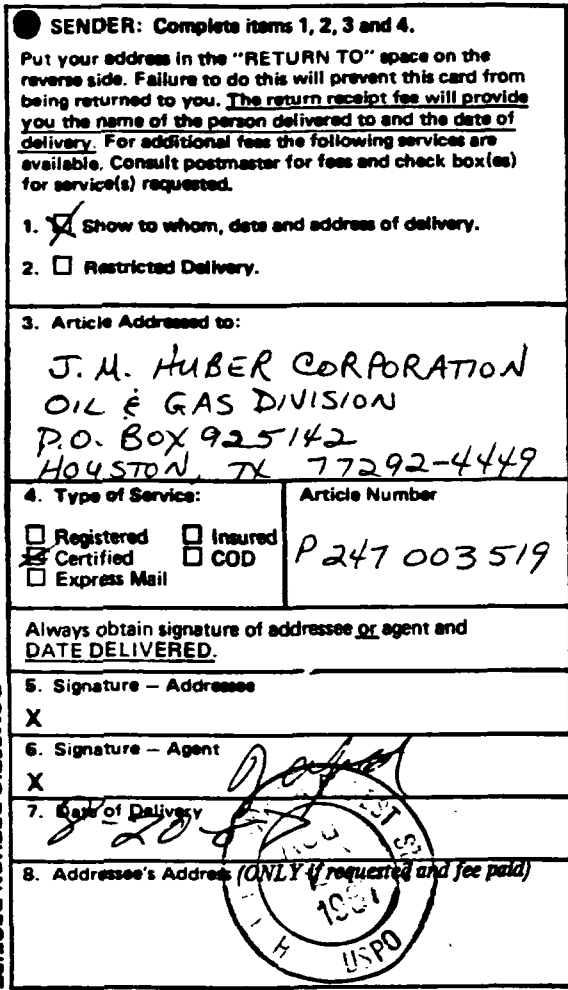 SENDER: Complete items 1, 2, 3 and 4.
Put your address in the "RETURN TO" space on the
reverse side. Failure to do this will prevent this card from
being returned to you. The return receipt fee will provide
you the name of the person delivered to and the date of
delivery. For additional fees the following services are
available. Consult postmaster for fees and check box(es)
for service(s) requested.
1. Show to whom, date and address of delivery.
2. Restricted Delivery.
3. Article Addressed to:
J. M. HUBER CORPORATION
OIL & GAS DIVISION
P.O. BOX 925142
HOUSTON, TX 77292-4449
4. Type of Service:
Registered Insured
Certified COD
Express Mail
Article Number
P 247 003 519
Always obtain signature of addressee or agent and
DATE DELIVERED.
5. Signature – Addressee
X
6. Signature – Agent
X
7. Date of Delivery
8-20-
8. Addressee's Address (ONLY if requested and fee paid)
1987
USPO